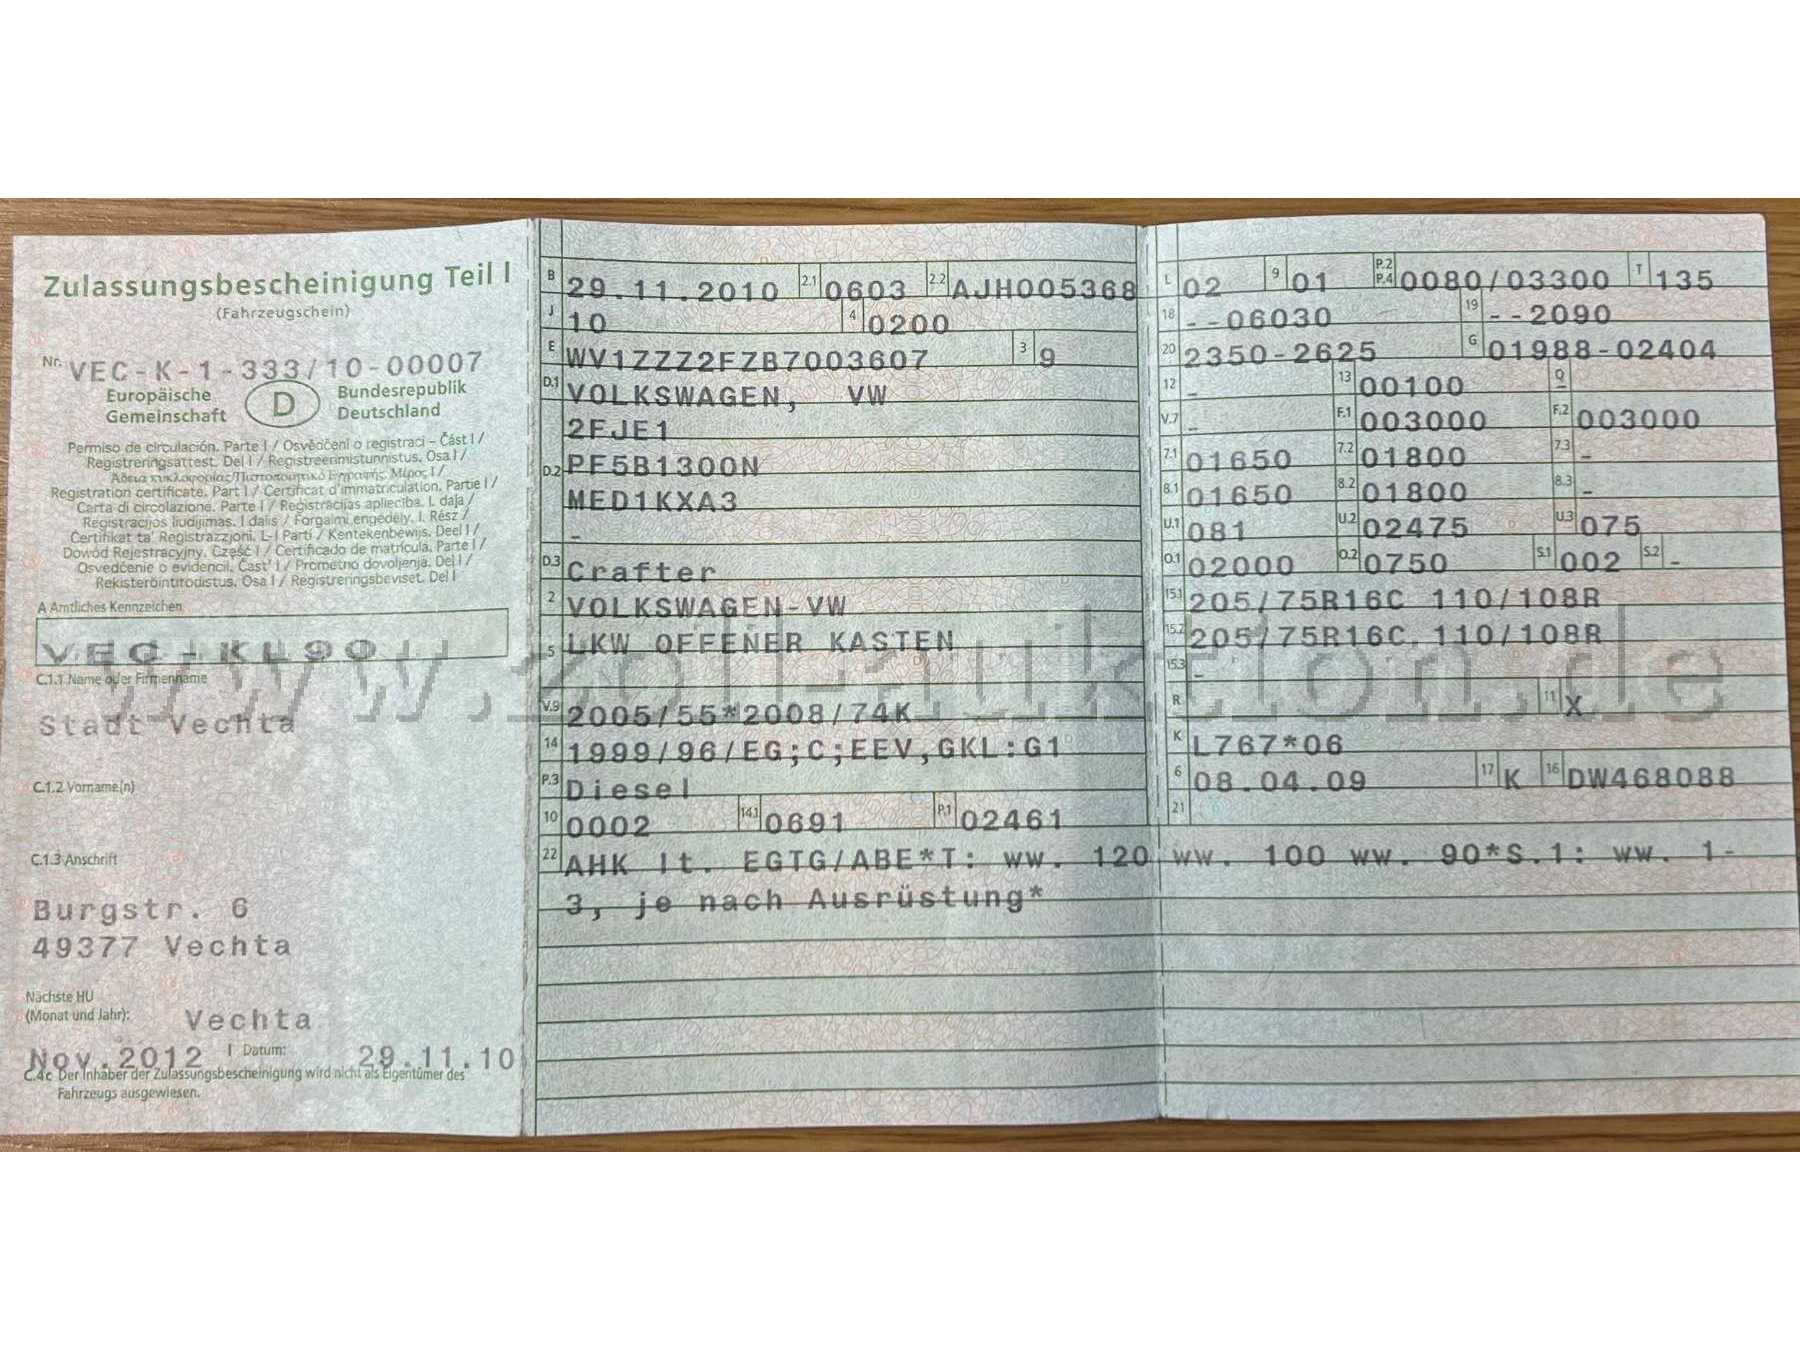 Zulassungsbescheinigung Teil I
(Fahrzeugschein)
Nr. VEC-K-1-333/10-00007
Europäische Gemeinschaft D Bundesrepublik Deutschland
Permiso de circulación. Parte I / Osvědčení o registraci – Část I /
Registreringsattest. Del I / Registreerimistunnistus. Osa I /
Άδεια κυκλοφορίας/Πιστοποιητικό Εγγραφής. Μέρος I /
Registration certificate. Part I / Certificat d'immatriculation. Partie I /
Carta di circolazione. Parte I / Reģistrācijas apliecība. I. daļa /
Registracijos liudijimas. I dalis / Forgalmi engedély. I. Rész /
Ċertifikat ta' Reġistrazzjoni. L-I Parti / Kentekenbewijs. Deel I /
Dowód Rejestracyjny. Część I / Certificado de matrícula. Parte I /
Osvedčenie o evidencii. Časť I / Prometno dovoljenja. Del I /
Rekisteröintitodistus. Osa I / Registreringsbeviset. Del I
A Amtliches Kennzeichen
VEC-KL90
C.1.1 Name oder Firmenname
Stadt Vechta
C.1.2 Vorname(n)
C.1.3 Anschrift
Burgstr. 6
49377 Vechta
Nächste HU
(Monat und Jahr): Vechta
Nov.2012 I Datum: 29.11.10
C.4c Der Inhaber der Zulassungsbescheinigung wird nicht als Eigentümer des
Fahrzeugs ausgewiesen.
B 29.11.2010 2.1 0603 2.2 AJH005368
J 10 4 0200
E WV1ZZZ2FZB7003607 3 9
D.1 VOLKSWAGEN, VW
2FJE1
D.2 PF5B1300N
MED1KXA3
-
D.3 Crafter
2 VOLKSWAGEN-VW
5 LKW OFFENER KASTEN
V.9 2005/55*2008/74K
14 1999/96/EG;C;EEV,GKL:G1
P.3 Diesel
10 0002 14.1 0691 P.1 02461
L 02 9 01 P.2 P.4 0080/03300 T 135
18 --06030 19 --2090
20 2350-2625 G 01988-02404
12 - 13 00100 Q
V.7 - F.1 003000 F.2 003000
7.1 01650 7.2 01800 7.3 -
8.1 01650 8.2 01800 8.3 -
U.1 081 U.2 02475 U.3 075
O.1 02000 O.2 0750 S.1 002 S.2 -
15.1 205/75R16C 110/108R
15.2 205/75R16C 110/108R
15.3 -
R 11 X
K L767*06
6 08.04.09 17 K 16 DW468088
21
22 AHK lt. EGTG/ABE*T: ww. 120 ww. 100 ww. 90*S.1: ww. 1-
3, je nach Ausrüstung*
www.zoll-auktion.de